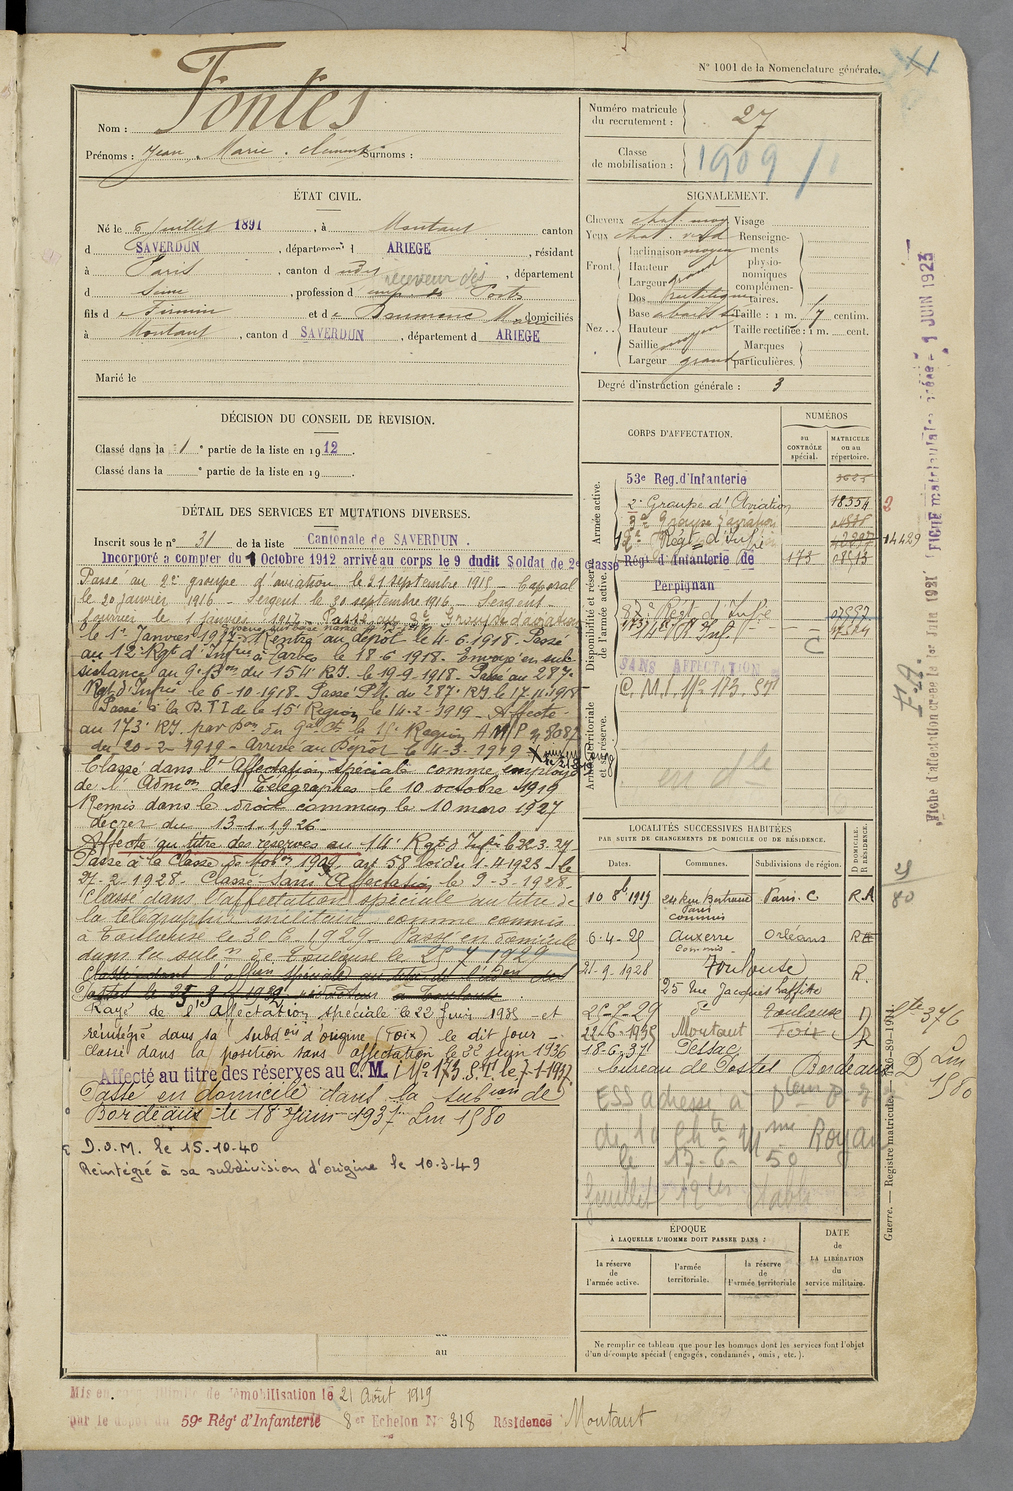 N° 1001 de la Nomenclature générale.
Nom : Fontes
Prénoms : Jean . Marie . Clément Surnoms :
Numéro matricule du recrutement : 27
Classe de mobilisation : 1909 /
ÉTAT CIVIL.
Né le 6 Juillet 1891, à Montaut canton
d SAVERDUN, département d ARIEGE, résidant
à Paris, canton d udis, département
receveur des
d Seine, profession d Postes
fils d e Firmin et d e Marie domiciliés
à Montaut, canton d SAVERDUN, département d ARIEGE
Marié le
SIGNALEMENT.
Cheveux chat. moy Visage
Yeux chat. Renseigne-
Front. Inclinaison moyen ments
Hauteur grand physio-
Largeur nomiques
complémen-
Dos rectiligne taires.
Nez .. Base abaissée Taille : 1 m. 7 centim.
Hauteur moyen Taille rectifiée : 1 m. cent.
Saillie moy Marques
Largeur grand particulières.
Degré d'instruction générale : 3
DÉCISION DU CONSEIL DE REVISION.
Classé dans la 1e partie de la liste en 1912.
Classé dans la e partie de la liste en 19
DÉTAIL DES SERVICES ET MUTATIONS DIVERSES.
Inscrit sous le n° 31 de la liste Cantonale de SAVERDUN .
Incorporé a compter du 1 Octobre 1912 arrivé au corps le 9 dudit Soldat de 2e classe
Passé au 2e groupe d'aviation le 21 septembre 1915 _ Caporal
le 20 janvier 1916 _ Sergent le 30 septembre 1916 _ Sergent
fourrier le 1 janvier 1917 _ Passé au 3e Groupe d'aviation
le 1er Janvier 1917. Rentré au dépôt le 4-6-1918. Passé
au 12e Rgt d'Infrie à Tarbes le 18-6-1918. Envoyé en sub-
sistance au 9e Bon du 154e R.I. le 19-9-1918. Passé au 287e
Rgt d'Infrie le 6-10-1918. Passé du 287e R.I. le 17-11-1918
Passé à la D.T.I de la 15e Région le 14-2-1919 _ Affecté
au 173e R.I. par Don du Gal Ct la 15e Région A M/P n 8082
du 20-2-1919 _ Arrivé au Dépôt le 4-3-1919
Classé dans l'Affectation Spéciale comme employé
de l'Admon des Télégraphes le 10 octobre 1919
Remis dans le droit commun le 10 mars 1927
décret du 13-1-1926
Affecté au titre des réserves au 14e Rgt d'Infie le 22.3.27
Passé à la Classe de Mobon 1909, art 58 loi du 1-4-1923 le
27-2-1928. Classé Sans Affectation le 9-3-1928.
Classé dans l'affectation spéciale au titre de
la télégraphie militaire comme commis
à Toulouse le 30 6 1929. Passé en domicile
dans la subon de Toulouse le 25 7 1929
Classé dans l'affon spéciale au titre de l'adon des
Postes le 25 9 1932 rédacteur à Toulouse
Rayé de l'Affectation Spéciale le 22 Juin 1935 et
réintégré dans sa subdon d'origine (Foix) le dit jour
classé dans la position sans affectation le 30 juin 1936
Affecté au titre des réserves au C.M. i No 173 S.T. le 7-1-1937
Passé en domicile dans la subion de
Bordeaux le 18 Juin 1937 Lm 1580
D.D.M. le 15.10.40
Réintégré à sa subdivision d'origine le 10-3-49
au
CORPS D'AFFECTATION.
NUMÉROS
au CONTRÔLE spécial.
MATRICULE ou au répertoire.
Armée active.
53e Reg.d'Infanterie
2e Groupe d'Aviation 18354
3e Groupe d'aviation
12e Régt d'Infrie 14429
Disponibilité et réserve de l'armée active.
Régt d'Infanterie de Perpignan 173
173e
14e R Infie
SANS AFFECTATION
C.M.I. No 173. ST
Armée territoriale et sa réserve.
LOCALITÉS SUCCESSIVES HABITÉES
PAR SUITE DE CHANGEMENTS DE DOMICILE OU DE RÉSIDENCE.
Dates. Communes. Subdivisions de région. D DOMICILE. R RÉSIDENCE.
10 8bre 1919 24 Rue Bertrand Paris Paris. C R.A
commis
6-4-25 Auxerre Orléans R
commis
21-9-1928 Toulouse R.
25 rue Jacques Laffitte
25-7-29 do Toulouse D
22-6-1935 Montaut Foix R
18-6-37 Pessac
bureau de Postes Bordeaux D Lm 1580
ESS adresse à
Royan
le 17-6-50
ÉPOQUE
À LAQUELLE L'HOMME DOIT PASSER DANS :
la réserve de l'armée active.
l'armée territoriale.
la réserve de l'armée territoriale
DATE de LA LIBÉRATION du service militaire.
Ne remplir ce tableau que pour les hommes dont les services font l'objet
d'un décompte spécial (engagés, condamnés, omis, etc.).
Mis en illimité de démobilisation le 21 Août 1919
par le dépôt du 59e Régt d'Infanterie 8er Echelon N° 318 Résidence Montaut
Guerre. — Registre matricule.
F.A.